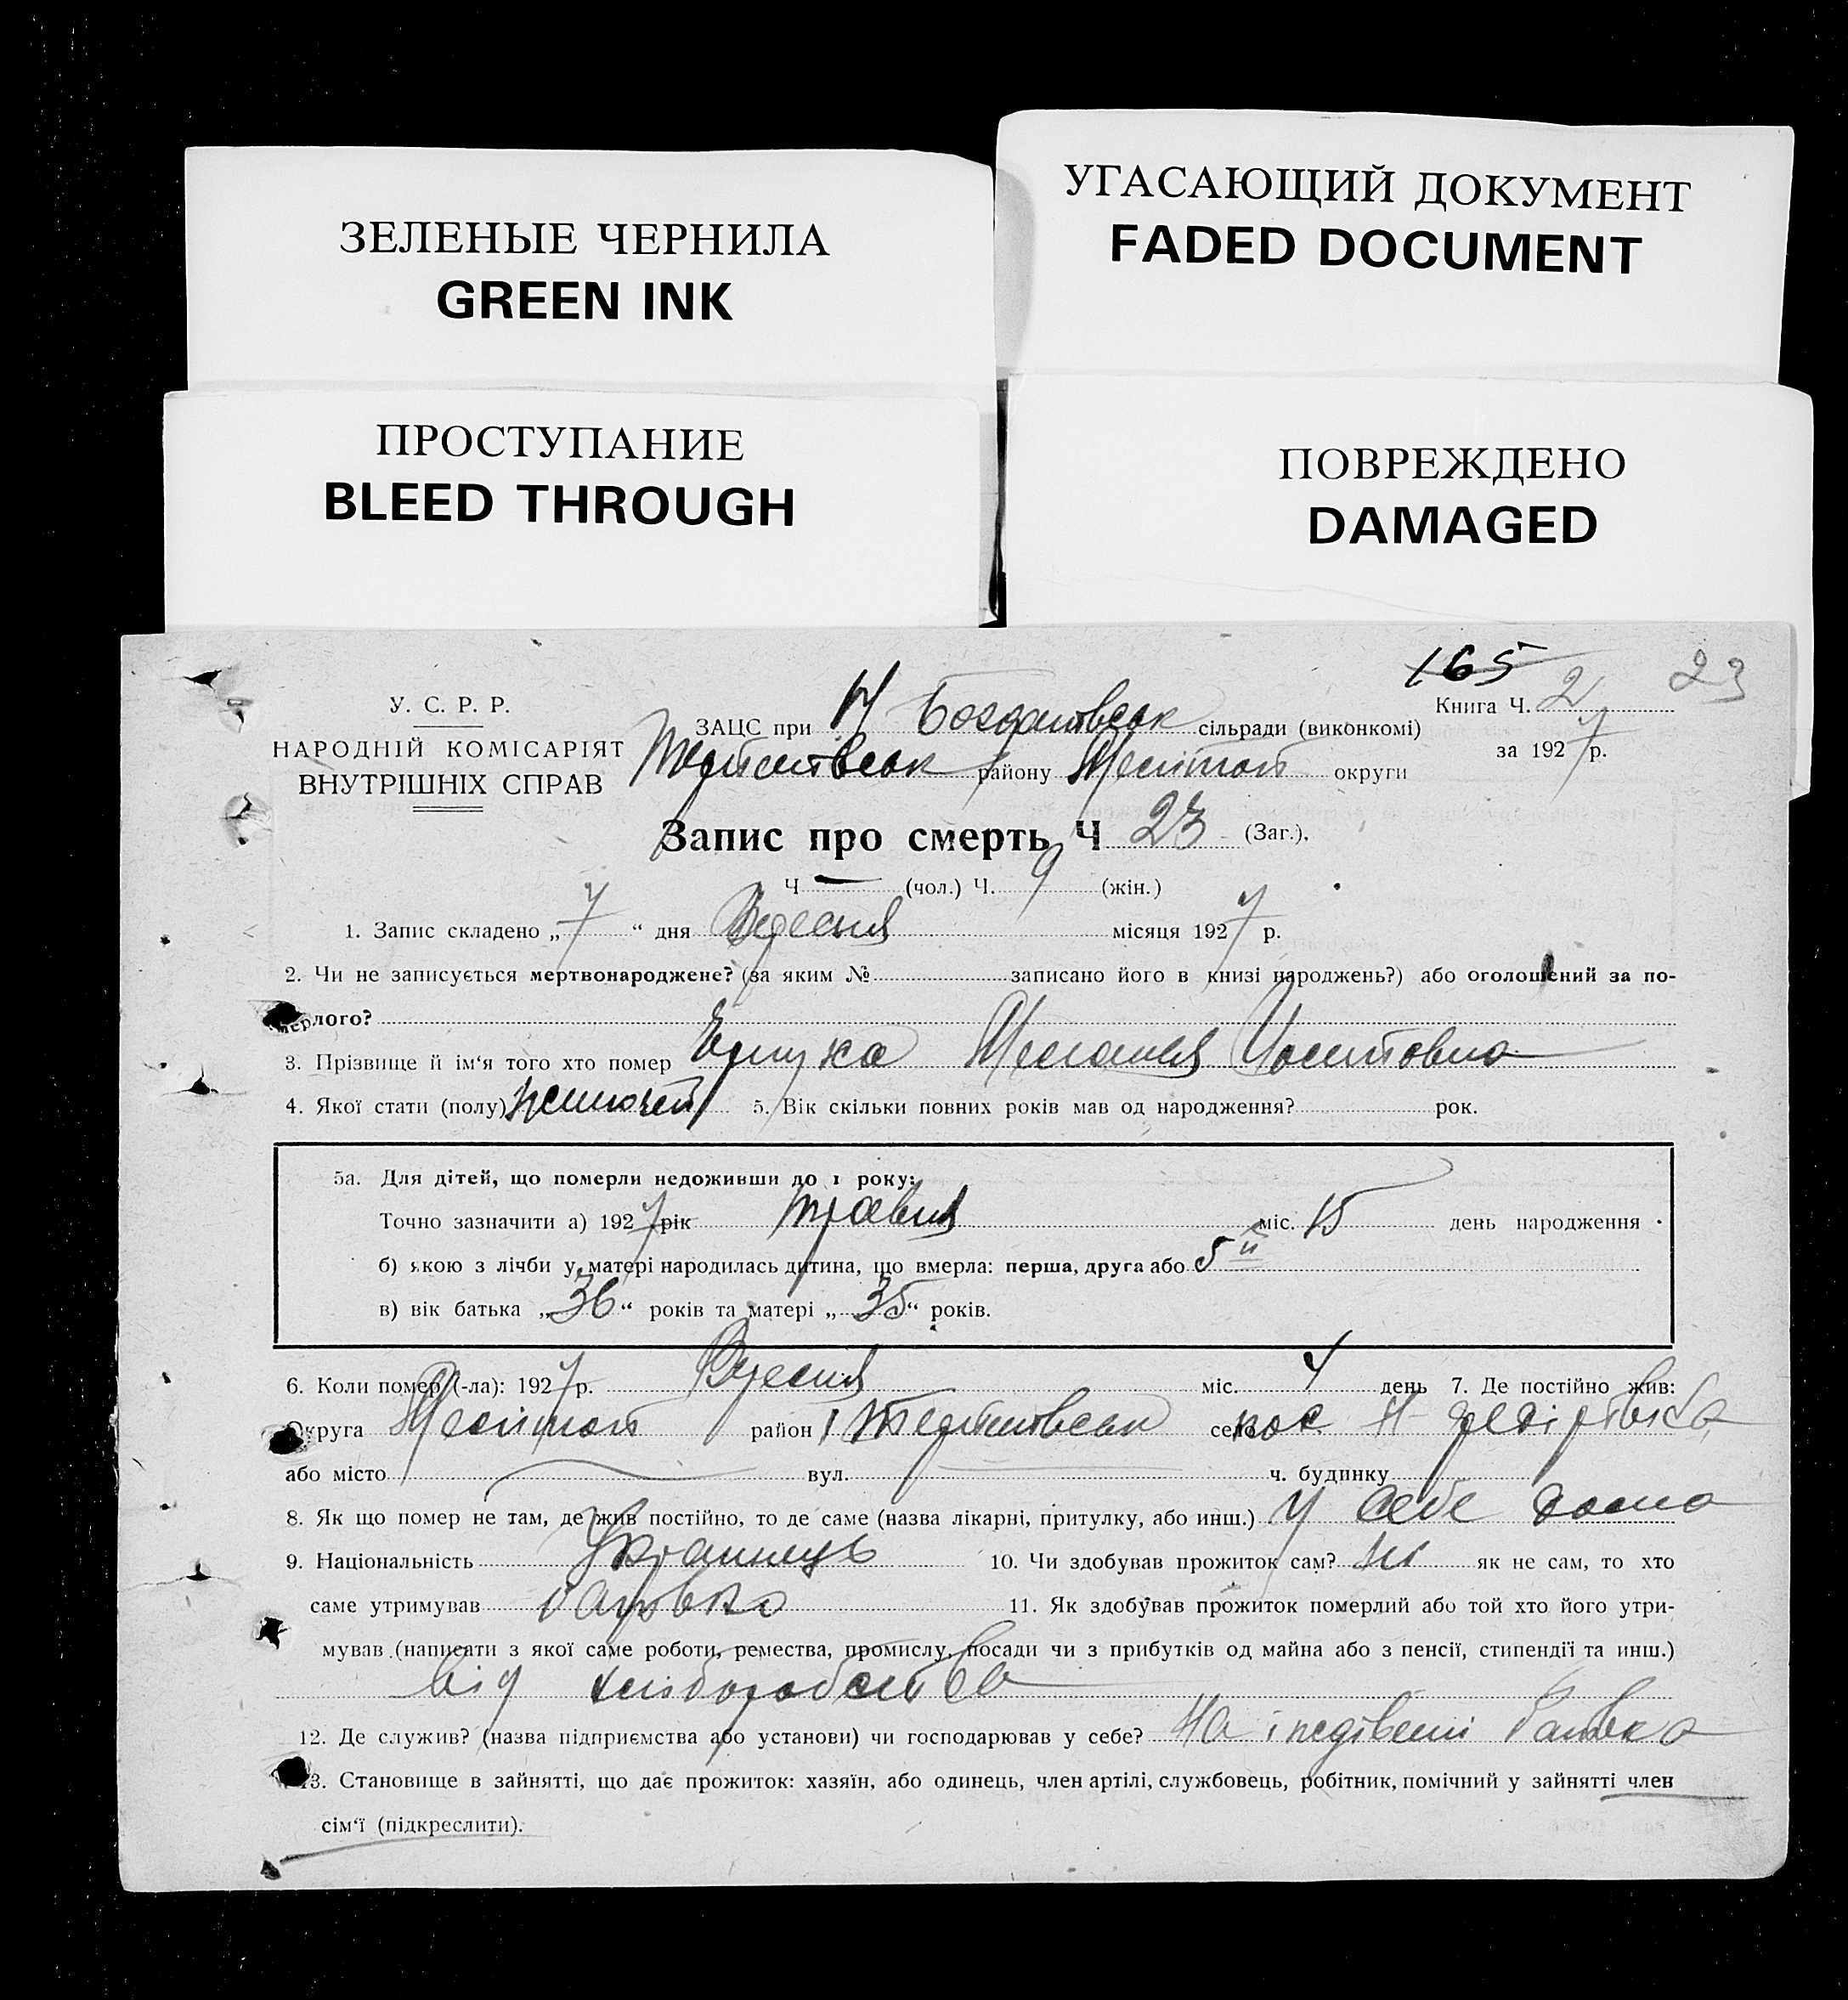 ЗЕЛЕНЫЕ ЧЕРНИЛА
GREEN INK
УГАСАЮЩИЙ ДОКУМЕНТ
FADED DOCUMENT
ПРОСТУПАНИЕ
BLEED THROUGH
ПОВРЕЖДЕНО
DAMAGED
165 23
У. С. Р. Р.
НАРОДНІЙ КОМІСАРІЯТ
ВНУТРІШНІХ СПРАВ
Книга Ч. 2
за 1927 р.
ЗАЦС при Н Богдановськ сільради (виконкомі)
району Меліітоп округи
Запис про смерть Ч 23 (Заг.).
Ч — (чол.) Ч. 9 (жін.)
1. Запис складено „ 7 “ дня Вересня місяця 1927 р.
2. Чи не записується мертвонароджене? (за яким № записано його в книзі народжень?) або оголошений за по-
мерлого?
3. Прізвище й ім‘я того хто помер Меланія
4. Якої стати (полу) 5. Вік скільки повних років мав од народження? рок.
5а. Для дітей, що померли недоживши до 1 року:
Точно зазначити а) 1927 рік травня міс. 15 день народження
б) якою з лічби у матері народилась дитина, що вмерла: перша, друга або 5й
в) вік батька „ 36 “ років та матері „ 35 “ років.
6. Коли помер (-ла): 1927 р. Вересня міс. 4 день 7. Де постійно жив:
Округа Меліітоп район село
або місто вул. ч. будинку
8. Як що помер не там, де жив постійно, то де саме (назва лікарні, притулку, або инш.) У себе дома
9. Національність Українець 10. Чи здобував прожиток сам? Ні як не сам, то хто
саме утримував батько 11. Як здобував прожиток померлий або той хто його утри-
мував (написати з якої саме роботи, ремества, промислу, посади чи з прибутків од майна або з пенсії, стипендії та инш.)
від хліборобства
12. Де служив? (назва підприємства або установи) чи господарював у себе? На батька
13. Становище в зайнятті, що дає прожиток: хазяїн, або одинець, член артілі, службовець, робітник, помічний у зайнятті член
сім‘ї (підкреслити).